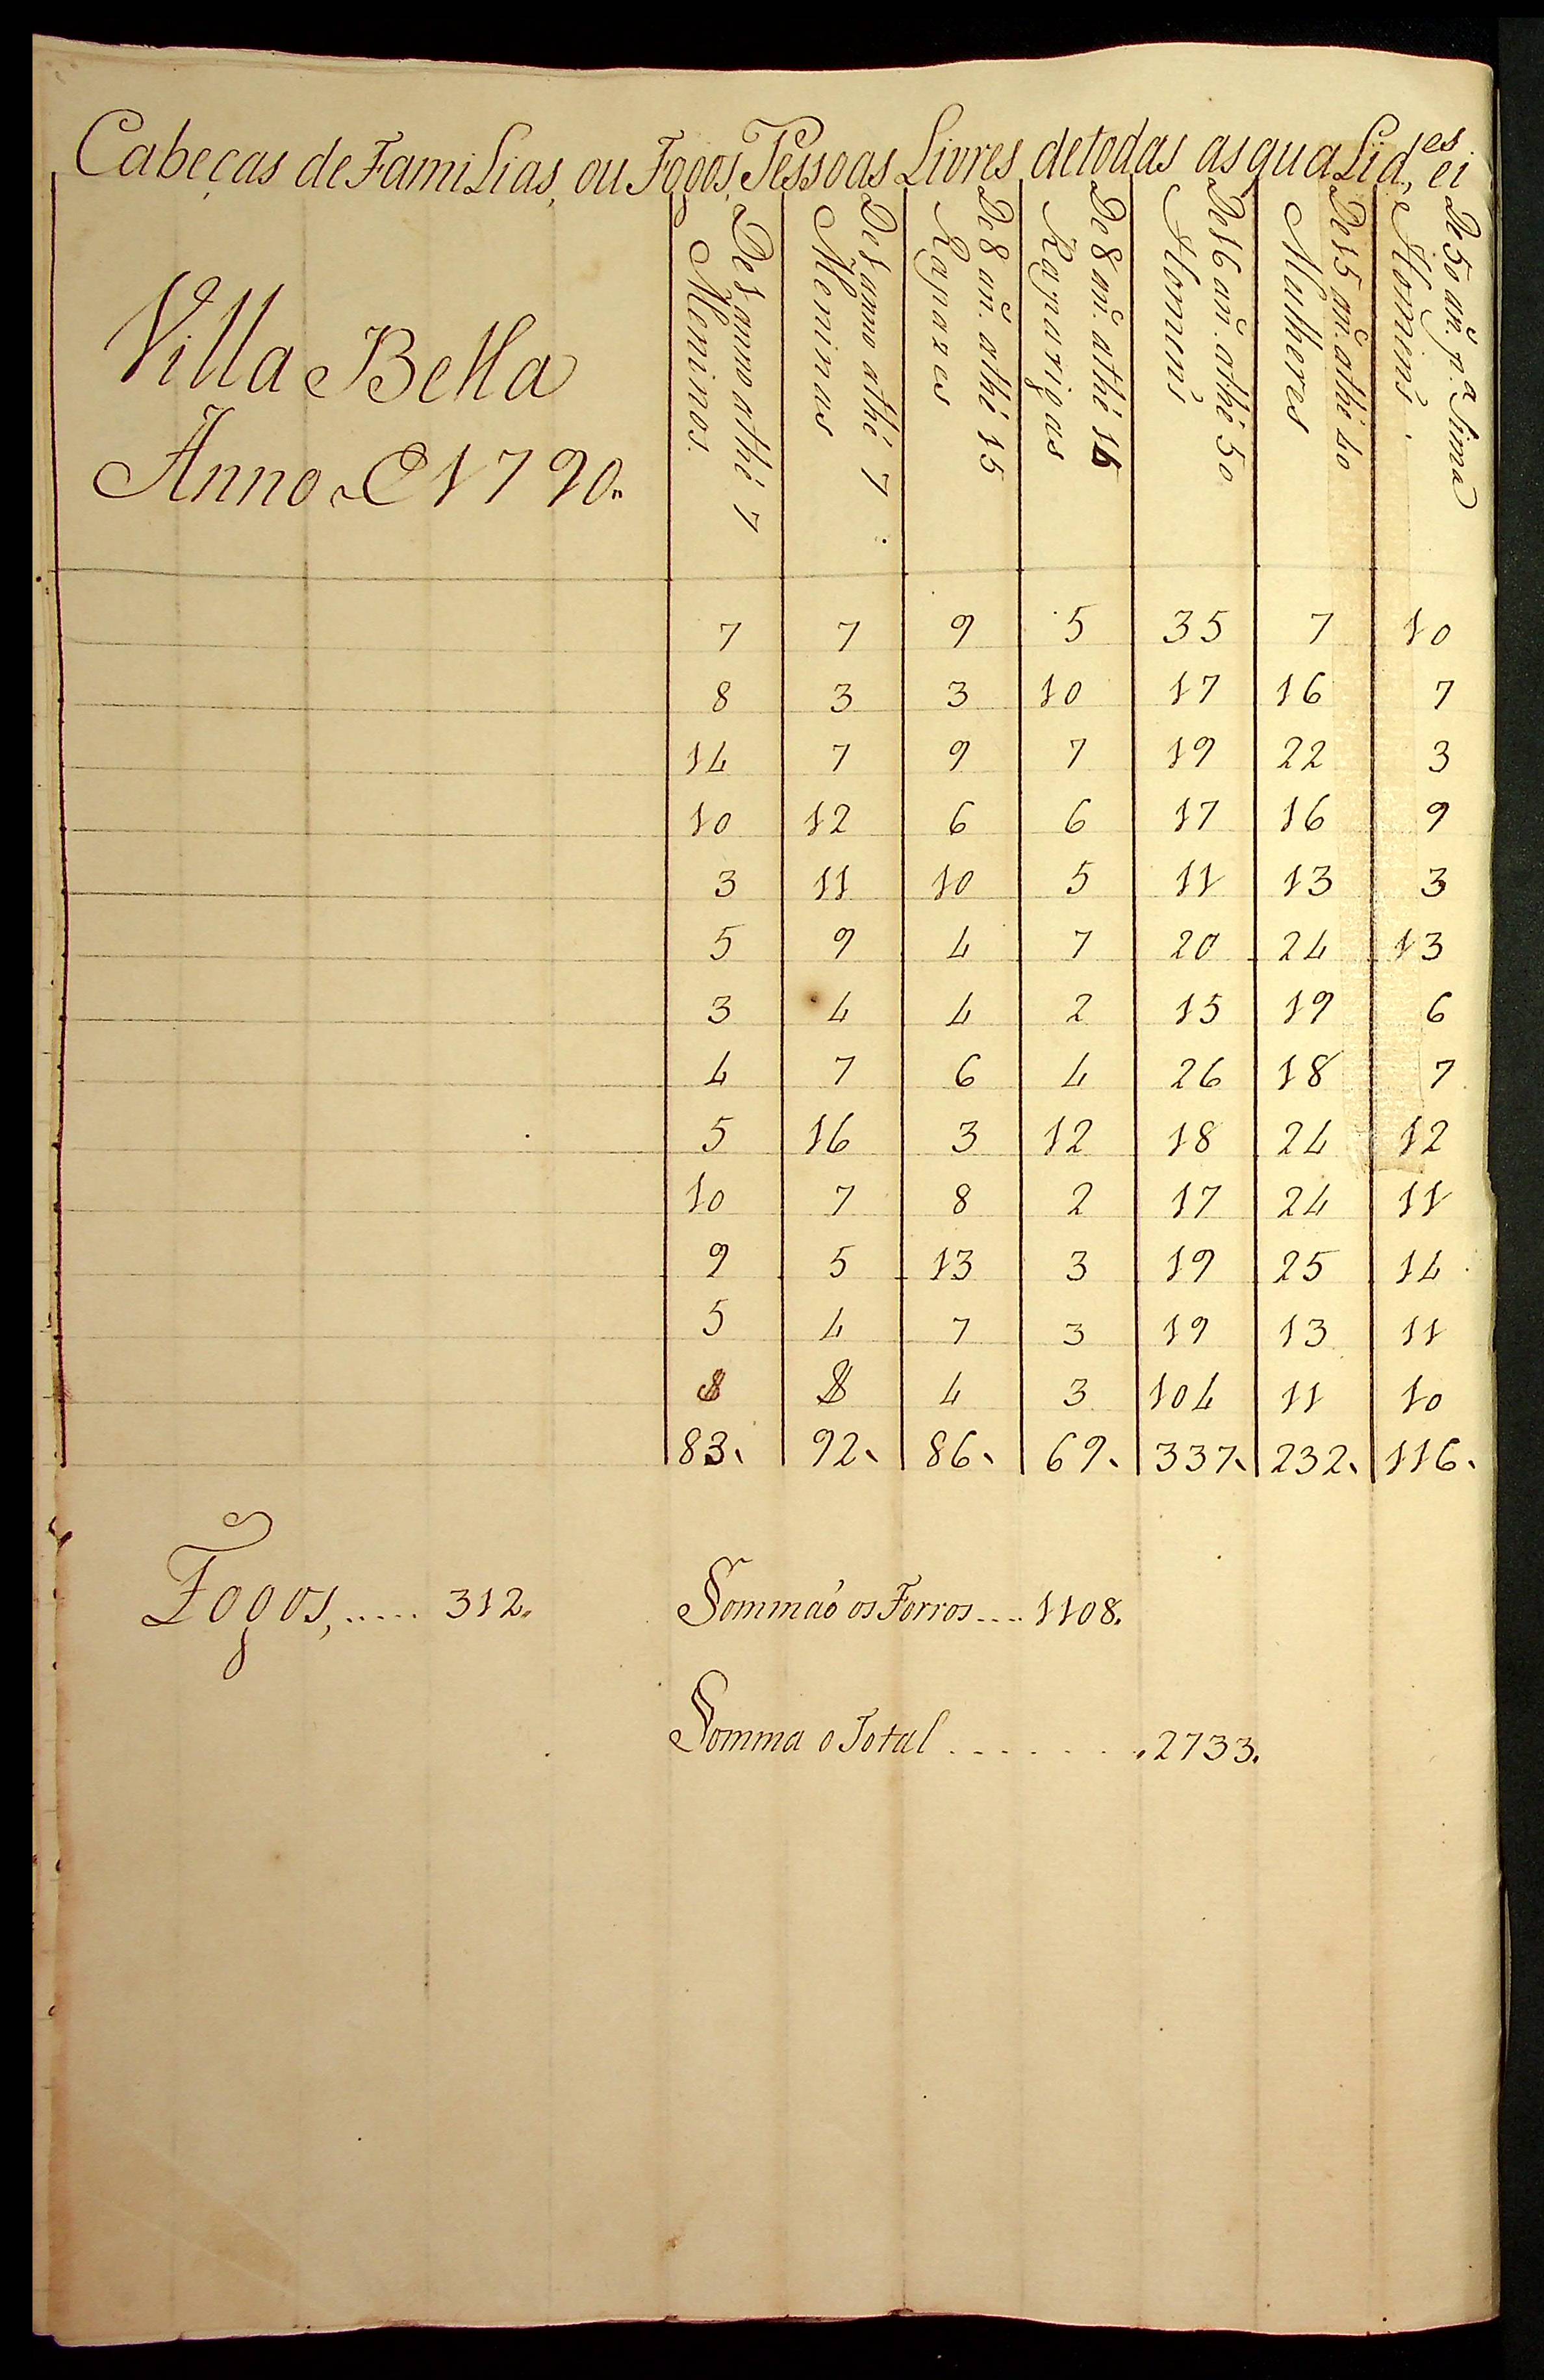 Cabeças de Familias, ou Fogos, Pessoas Livres de todas as qualid.es ei
Villa Bella
Anno de 1790.
De 1 anno athé 7
Meninos.
De 1 anno athé 7
Meninas
De 8 an. athé 15
Rapazes
De 8 an. athé 15
Raparigas
De 16 an. athé 50
Homens
De 15 an. athé 40
Mulheres
De 50 an. p.a sima
Homens
7 7 9 5 35 7 10
8 3 3 10 17 16 7
14 7 9 7 19 22 3
10 12 6 6 17 16 9
3 11 10 5 11 13 3
5 9 4 7 20 24 13
3 4 4 2 15 19 6
4 7 6 4 26 18 7
5 16 3 12 18 24 12
10 7 8 2 17 24 11
9 5 13 3 19 25 14
5 4 7 3 19 13 11
4 3 104 11 10
83. 92. 86. 69. 337. 232. 116.
Fogos, ..... 312.
Sommaõ os Forros .... 1108.
Somma o Total ........ 2733.